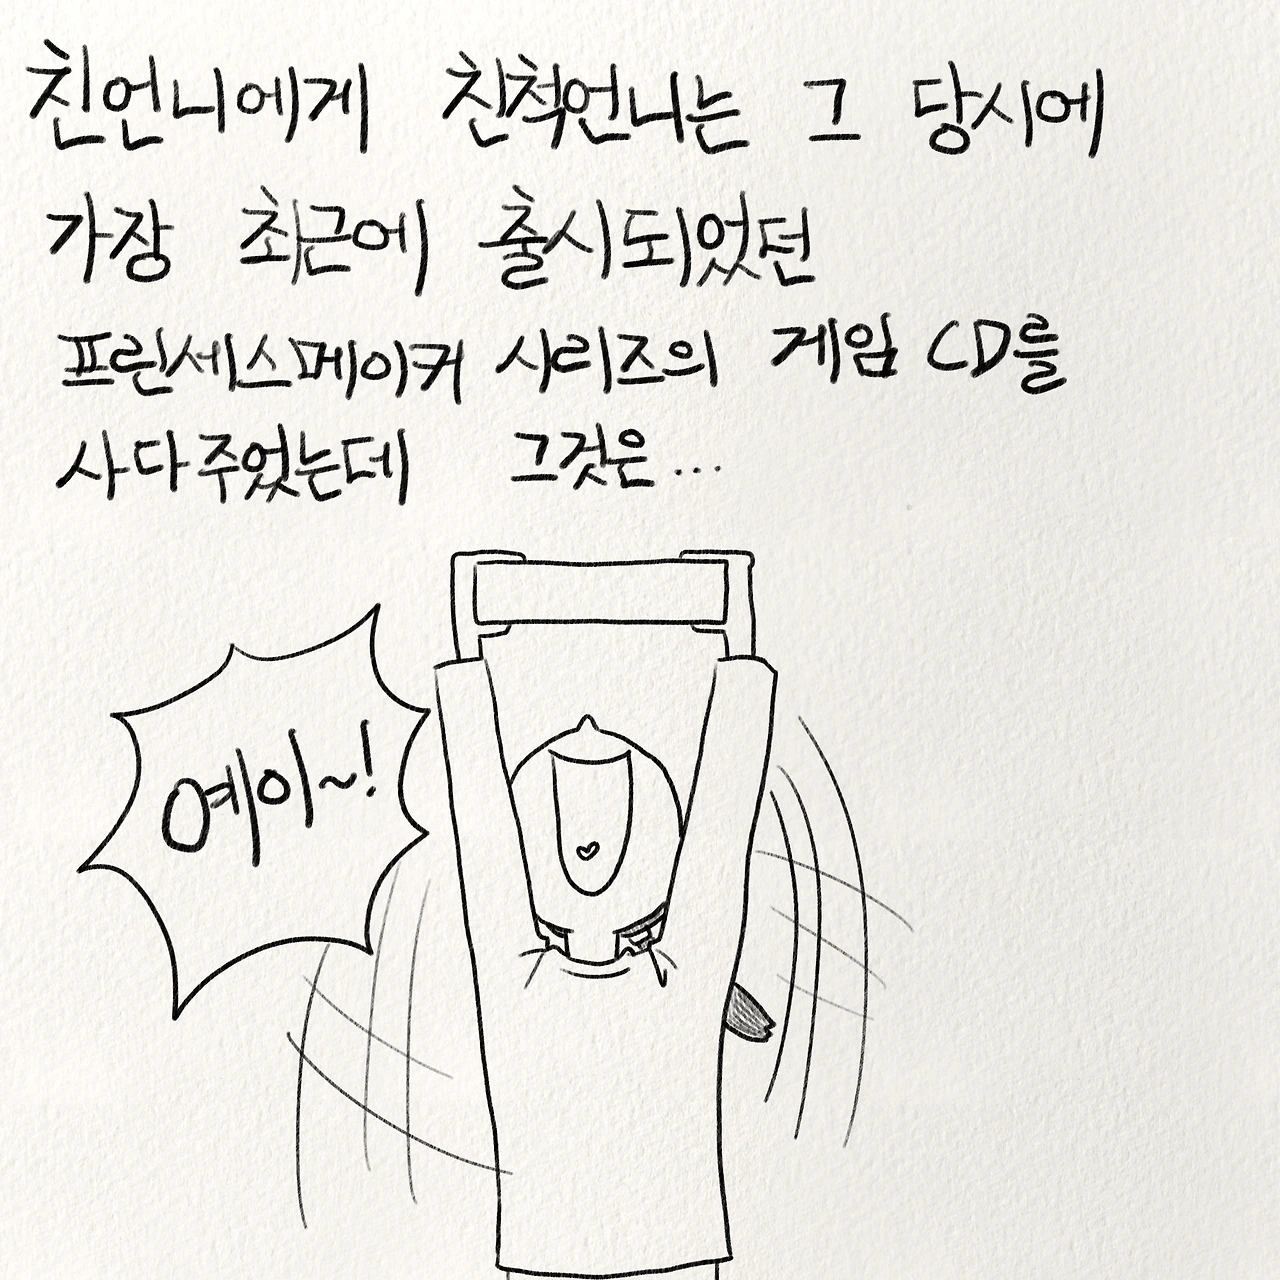 친언니에게 친척언니는 그 당시에
가장 최근에 출시되었던
프린세스메이커 시리즈의 게임 CD를
사다주었는데 그것은...
예이~!